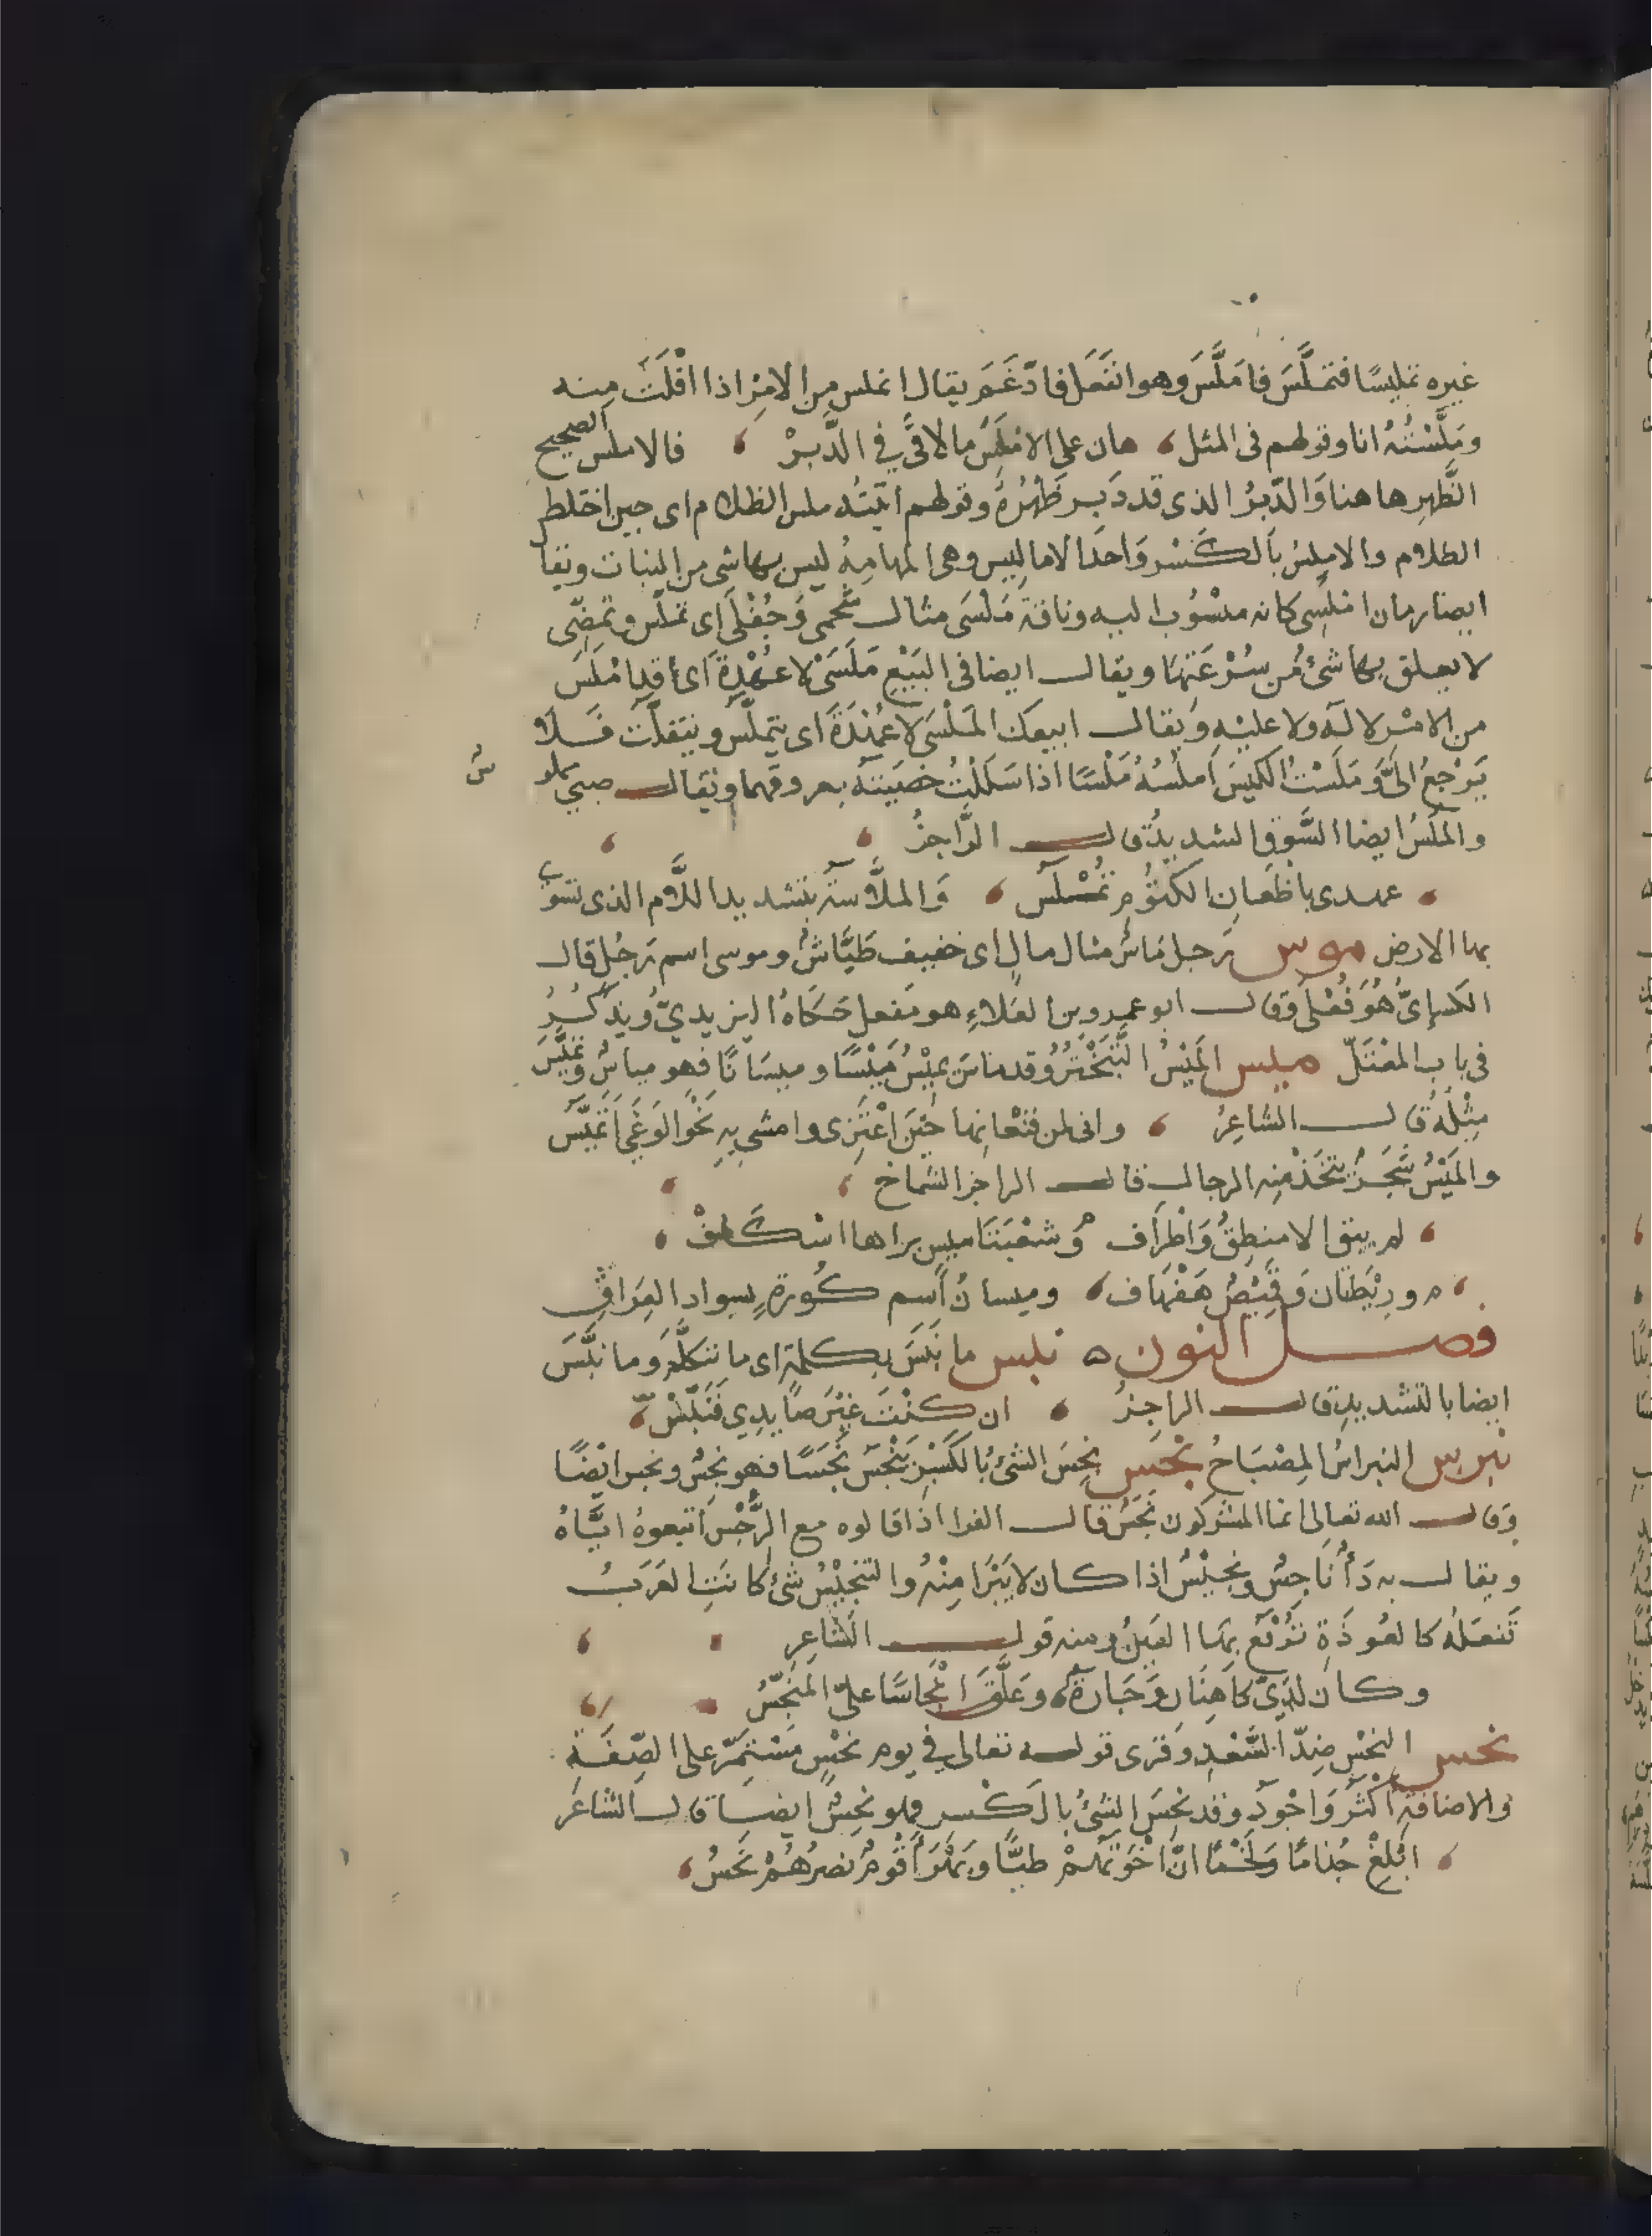 غيره تمليسًا فتملَّسَ فامَلَّسَ وهو انفَعَل فادّغَمَ يقال انملس من الامْرِ اذا افْلَتَ منه
ومَلَّسْتُهُ انا وقولهم فى المثل هان على الامْلَسِ ما لاقَى فِي الدَّبِرْ فالاملس الصحيح
الظَّهرِ هاهنا وَالدّبِرُ الذى قد دَبِرَ ظَهْرُهُ وقولهم اتيتُه ملس الظلام اى حين اختلط
الظلام والامليسُ بالكَسْر وَاحدُ الاماليس وهى المهامِهُ ليس بها شى من النبات ويقا
ايضا رمان امْلِسِى كانه منسُوب اليه وناقة مَلَسَى مثال شَمَجى وَجَفَلَى اى تملّسُ وتمضّى
لا يعلق بها شئ مِن سُرْعَتها ويقال ايضا فى البَيْعِ مَلَسَى لا عُهْدَةَ اى قد امْلَسَ
من الامْر لا لَه ولا عليْهِ وَيقال ابيعك المَلَسَى لا عُهْدَةَ اى يتملَّس ويتفلّتُ فَلا
يَرْجعُ الىَّ وَمَلَسْتُ الكبشَ املُسُهُ مَلْسًا اذا سَلَلْتُ خصيَيْهُ بعروقهما ويقال صبى مملو
س
والمَلْسُ ايضا السَّوق الشديدُ قال الرَّاجزُ
عهدى باظعانِ الكَتُومِ تُمْلَسُ وَالملَّاسَة بتشديد اللَّام الذى تسَوّى
بها الارض موس رَجل مَاسٌ مثال مالٍ اى خفيف طَيَّاشٌ وموسى اسم رَجُل قال
الكسائىُّ هُوَ فُعْلى وقال ابو عمرو بن العَلاءِ هو مُفعل حَكَاهُ اليزيدىّ ويذكَرُ
فى باب المعْتَلّ ميس المَيْسُ التَّبَخْتُرُ وقد ماسَ يميْسُ مَيْسًا وميسَانًا فهو مياسٌ وتميَّسَ
مِثْلُهُ قال الشاعِرُ وانى لمن قنعانها حيَن اعْتَزى وامشى بِهِ نَحْوَ الوَغَى اَتَمَيَّسُ
والمَيْسُ شَجَرٌ يتّخَذُ منه الرحال قال الراجز الشماخ
لم يبق الا منطِقٌ وَاطْرَاف وَشعْبَتَا ميسٍ براها اسْكَافْ
وريْطَتان وَقَميْصٌ هَفْهَاف وميسانُ اسم كُورَةٍ بسواد العِرَاقِ
فصل النون نبس ما نَبَسَ بكلمةٍ اى ما تَتكلَّم وَما نَبَّسَ
ايضا بالتشديدِ قال الراجزُ ان كنْتَ غَيْرَ صَايدِى فَنَبّسْ
نبرس النبراسُ المصْبَاحُ نجس نجِسَ الشئُ بالكَسْرِ يَنْجَسُ نَجَسًا فهو نجِسٌ ونجس ايضًا
وقال الله تعالى انما المشركون نَجَسٌ قال الفرا اذا قالوه مع الرِّجْسِ اتبعوهُ ايّاهُ
ويقال به دَآءٌ نَاجسٌ ونجيسٌ اذا كان لا يَبْرَا مِنْهُ والتنجيْسُ شئ كانت العَرَبُ
تَفعَلهُ كالعُوذَةِ تَدْفَع بهَا العَيْنُ ومنه قول الشَاعِرِ
وكان لَدَىَّ كاهِنَان وَحَارِثٌ وعَلَّقَ انْجَاسًا علىَّ المُنَجّسُ
نحس النحْس ضِدّ السَّعْدِ وَقرئ قوله تعالى فى يوم نَحْسٍ مُسْتَمِرّ على الصِّفَة
والاضافةُ اكْثَرُ وَاجْوَدُ وقد نحِسَ الشئُ بالكَسْر فهو نحِسٌ ايضا قال الشاعَر
ابْلِغْ جُذامًا وَلخْمًا انَّ اخْوَتَهمْ طيّا وبَهْرَآ قَوْمٌ نصرُهُمْ نَحِسُ